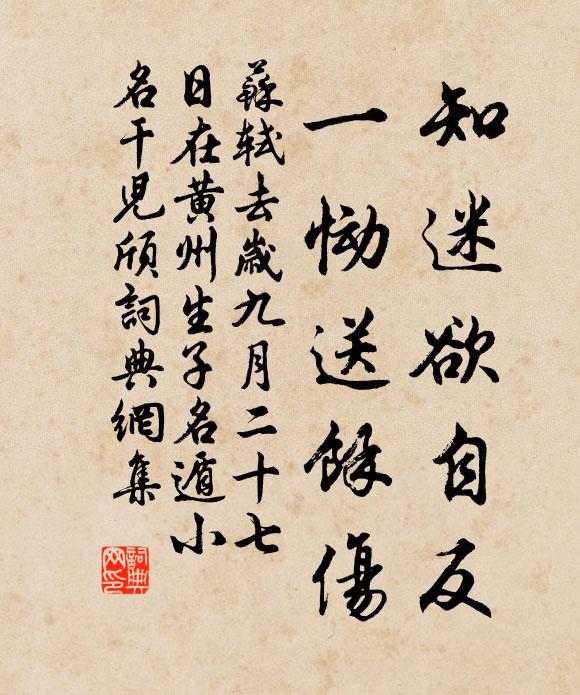 知迷欲自反
一慟送餘傷
蘇軾去歲九月二十七
日在黃州生子名遁小
名干兒頎詞典網集
詞典网印